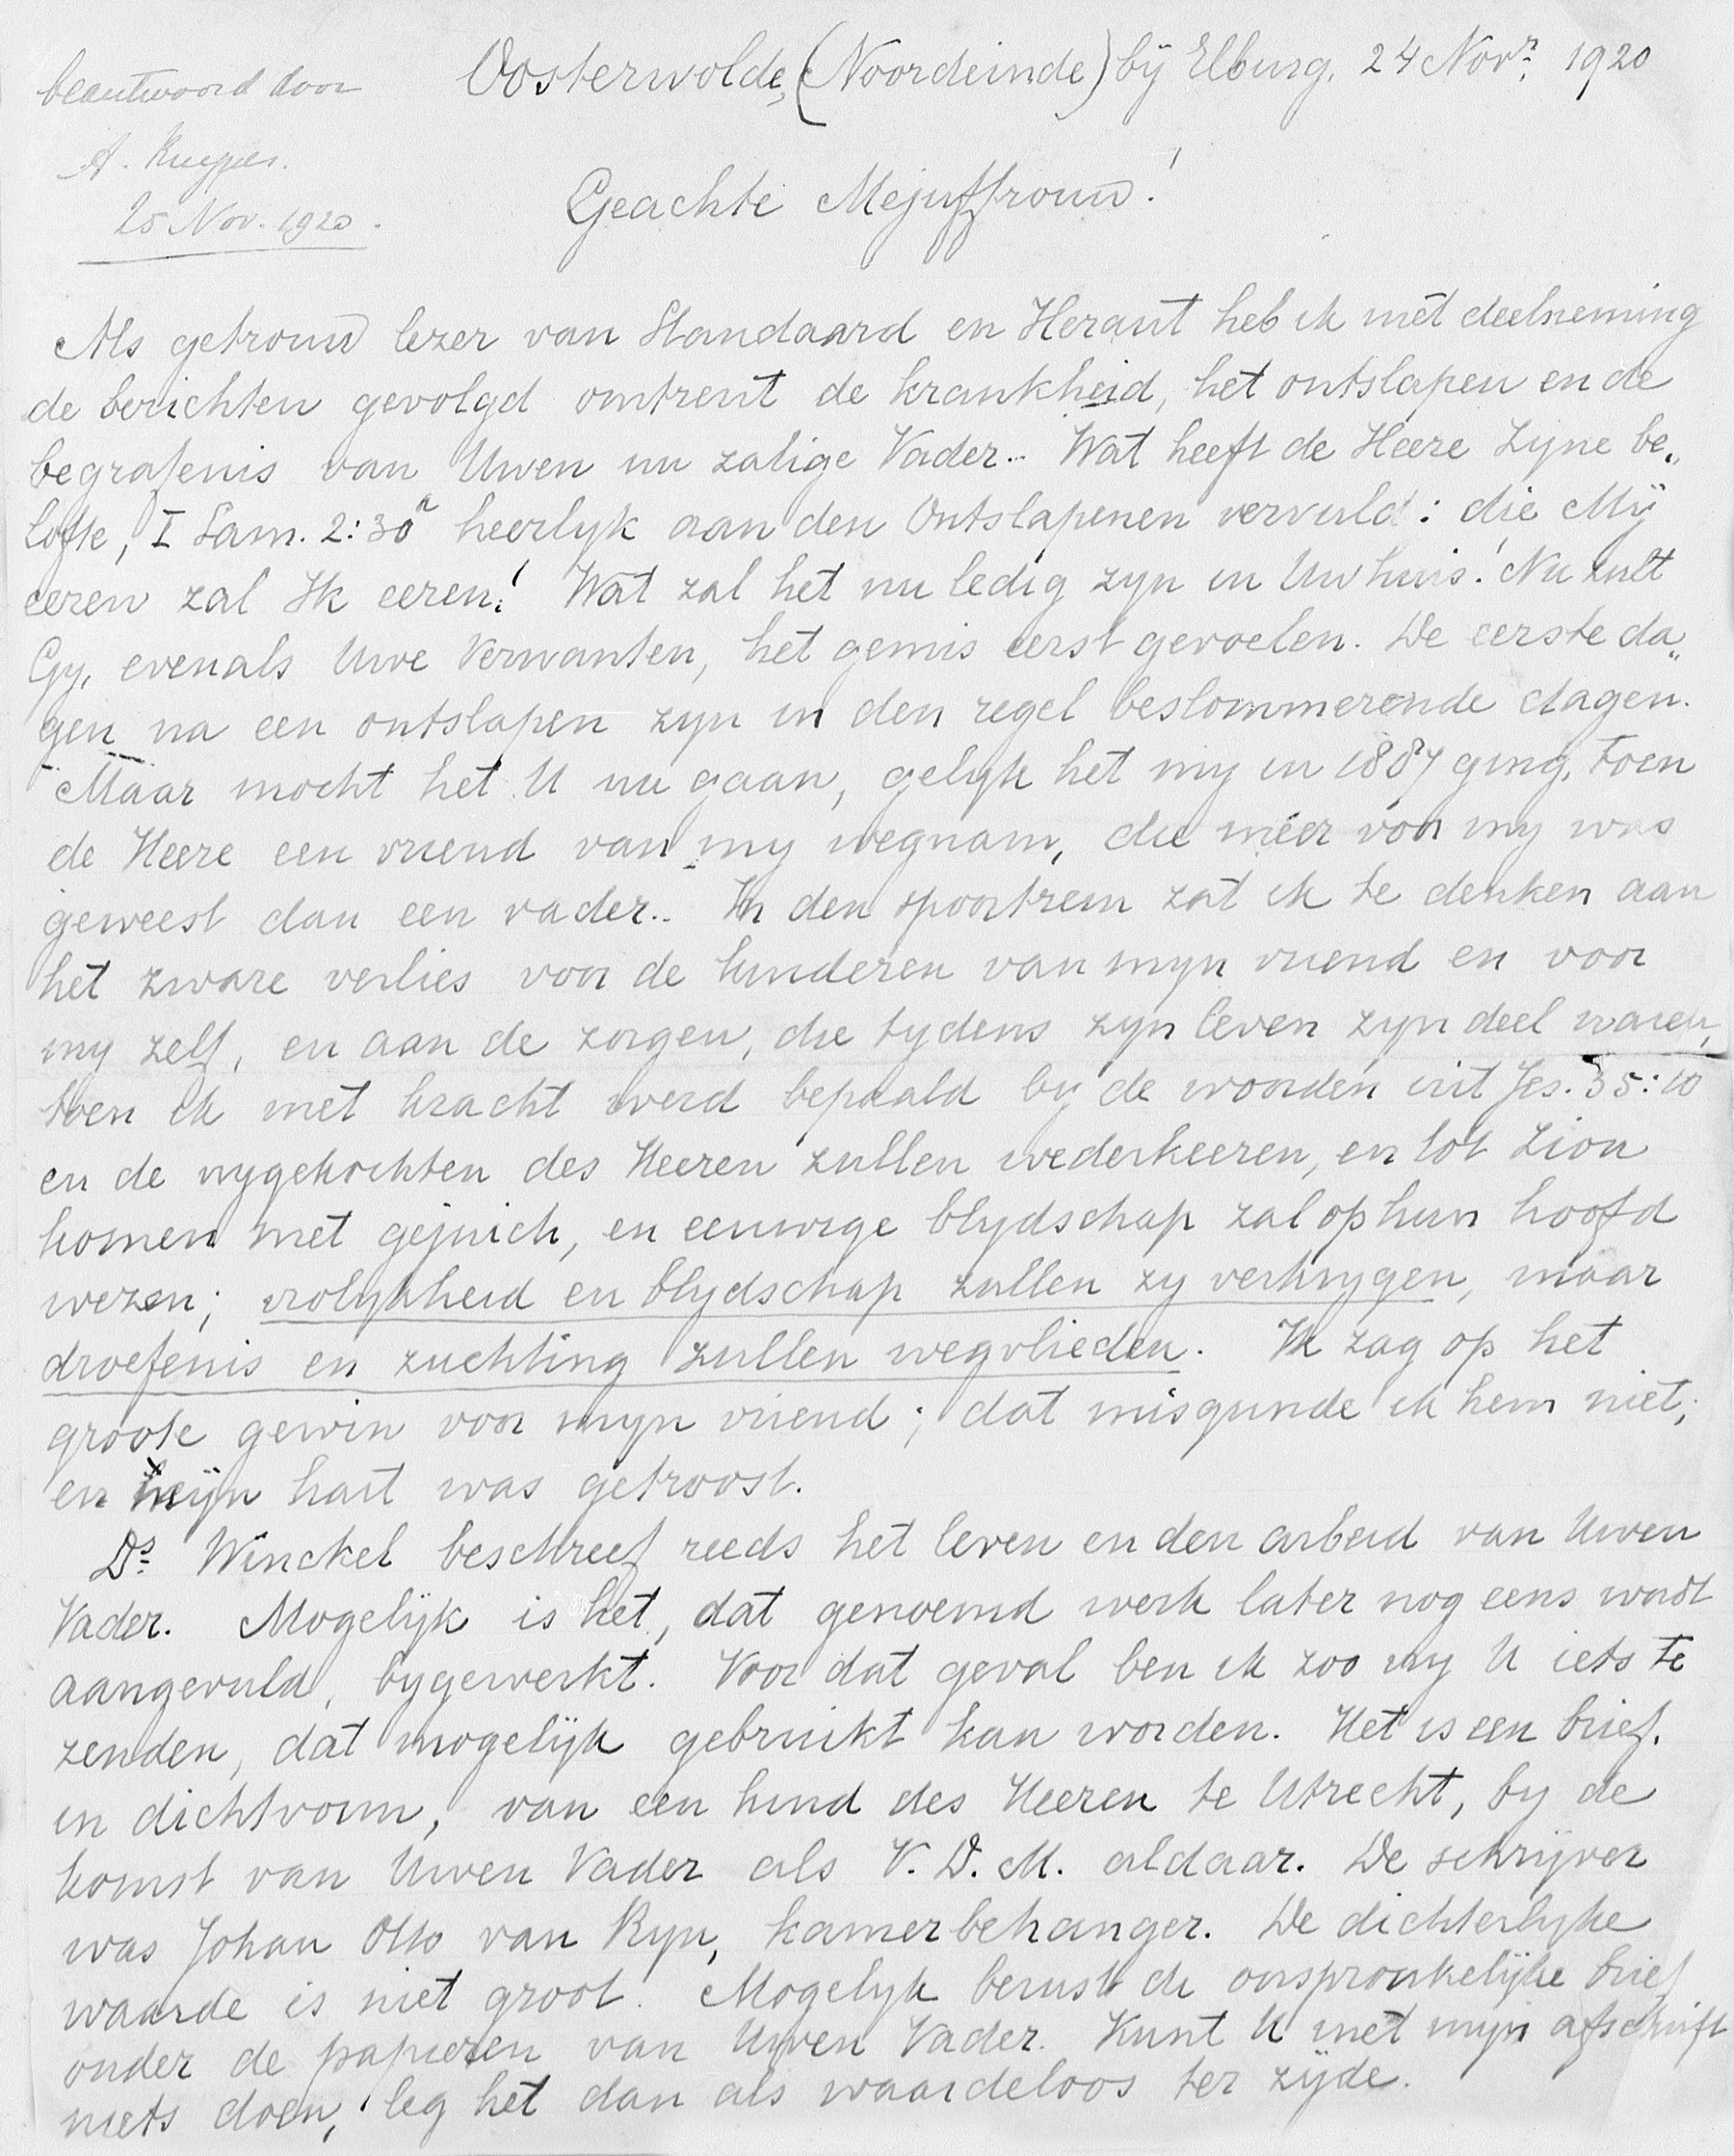 beantwoord door
A. Kuyper.
25 Nov. 1920.
Oosterwolde, (Noordeinde) bij Elburg, 24 Novr. 1920
Geachte Mejuffrouw!
Als getrouw lezer van Standaard en Heraut heb ik met deelneming
de berichten gevolgd omtrent de krankheid, het ontslapen en de
begrafenis van Uwen nu zalige Vader.. Wat heeft de Heere Zyne be„
lofte, I Sam. 2:30a heerlyk aan den Ontslapenen vervuld: die Mij
eeren zal Ik eeren! Wat zal het nu ledig zyn in Uw huis! Nu zult
Gy, evenals Uwe Verwanten, het gemis eerst gevoelen. De eerste da„
gen na een ontslapen zyn in den regel beslommerende dagen.
Maar mocht het U nu gaan, gelyk het my in 1887 ging, toen
de Heere een vriend van my wegnam, die méér voor my was
geweest dan een vader.. In den spoortrein zat ik te denken aan
het zware verlies voor de kinderen van myn vriend en voor
my zelf, en aan de zorgen, die tydens zyn leven zyn deel waren,
toen ik met kracht werd bepaald by de woorden uit Jes. 35:10
en de vrygekochten des Heeren zullen wederkeeren, en tot Zion
komen met gejuich, en eeuwige blydschap zal op hun hoofd
wezen; vrolykheid en blydschap zullen zy verkrygen, maar
droefenis en zuchting zullen wegvlieden. Ik zag op het
groote gewin voor myn vriend; dat misgunde ik hem niet;
en mijn hart was getroost.
Ds. Winckel beschreef reeds het leven en den arbeid van Uwen
Vader. Mogelijk is het, dat genoemd werk later nog eens wordt
aangevuld, bygewerkt. Voor dat geval ben ik zoo vry U iets te
zenden, dat mogelijk gebruikt kan worden. Het is een brief,
in dichtvorm, van een kind des Heeren te Utrecht, by de
komst van Uwen Vader als V. D. M. aldaar. De schrijver
was Johan Otto van Ryn, kamerbehanger. De dichterlyke
waarde is niet groot. Mogelyk berust de oorspronkelijke brief
onder de papieren van Uwen Vader. Kunt U met myn afschrift
niets doen, leg het dan als waardeloos ter zijde.